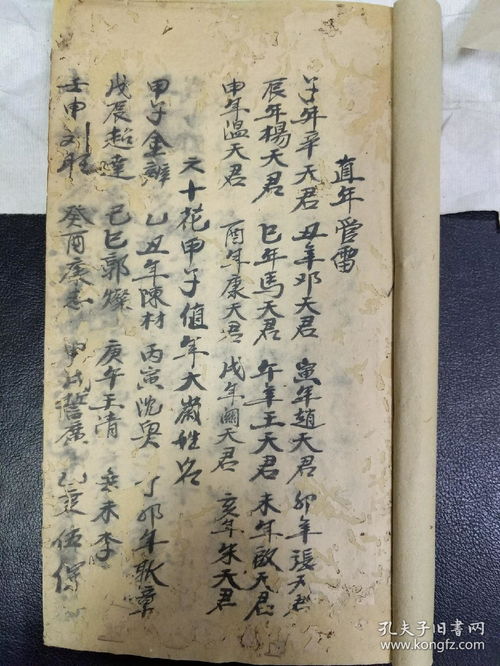 直年管雷
子年辛天君 丑年邓天君 寅年趙天君 卯年張天君
辰年楊天君 巳年馬天君 午年王天君 未年殷天君
申年溫天君 酉年康天君 戌年關天君 亥年朱天君
六十花甲子值年太歲姓名
甲子金辦 乙丑年陳材 丙寅沈興 丁卯年耿章
戊辰趙達 己巳郭燦 庚午王清 辛未李
壬申刘旺 癸酉康志 甲戌誓廣 乙亥伍保
孔夫子旧书网
www.kongfz.com